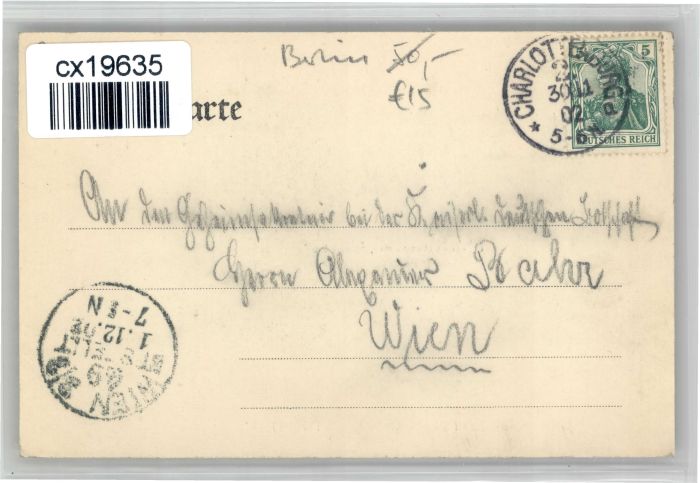 cx19635
Berlin 50,-
€15
arte
CHARLOTTENBURG
2
30 11
02
5-6 N
a
5
DEUTSCHES REICH
An den Geheimsekretair bei der Kaiserl. Deutschen Botschaft
Herrn Alexander
Wien
WIEN
1.12.02
7-8 N
BESTELLT